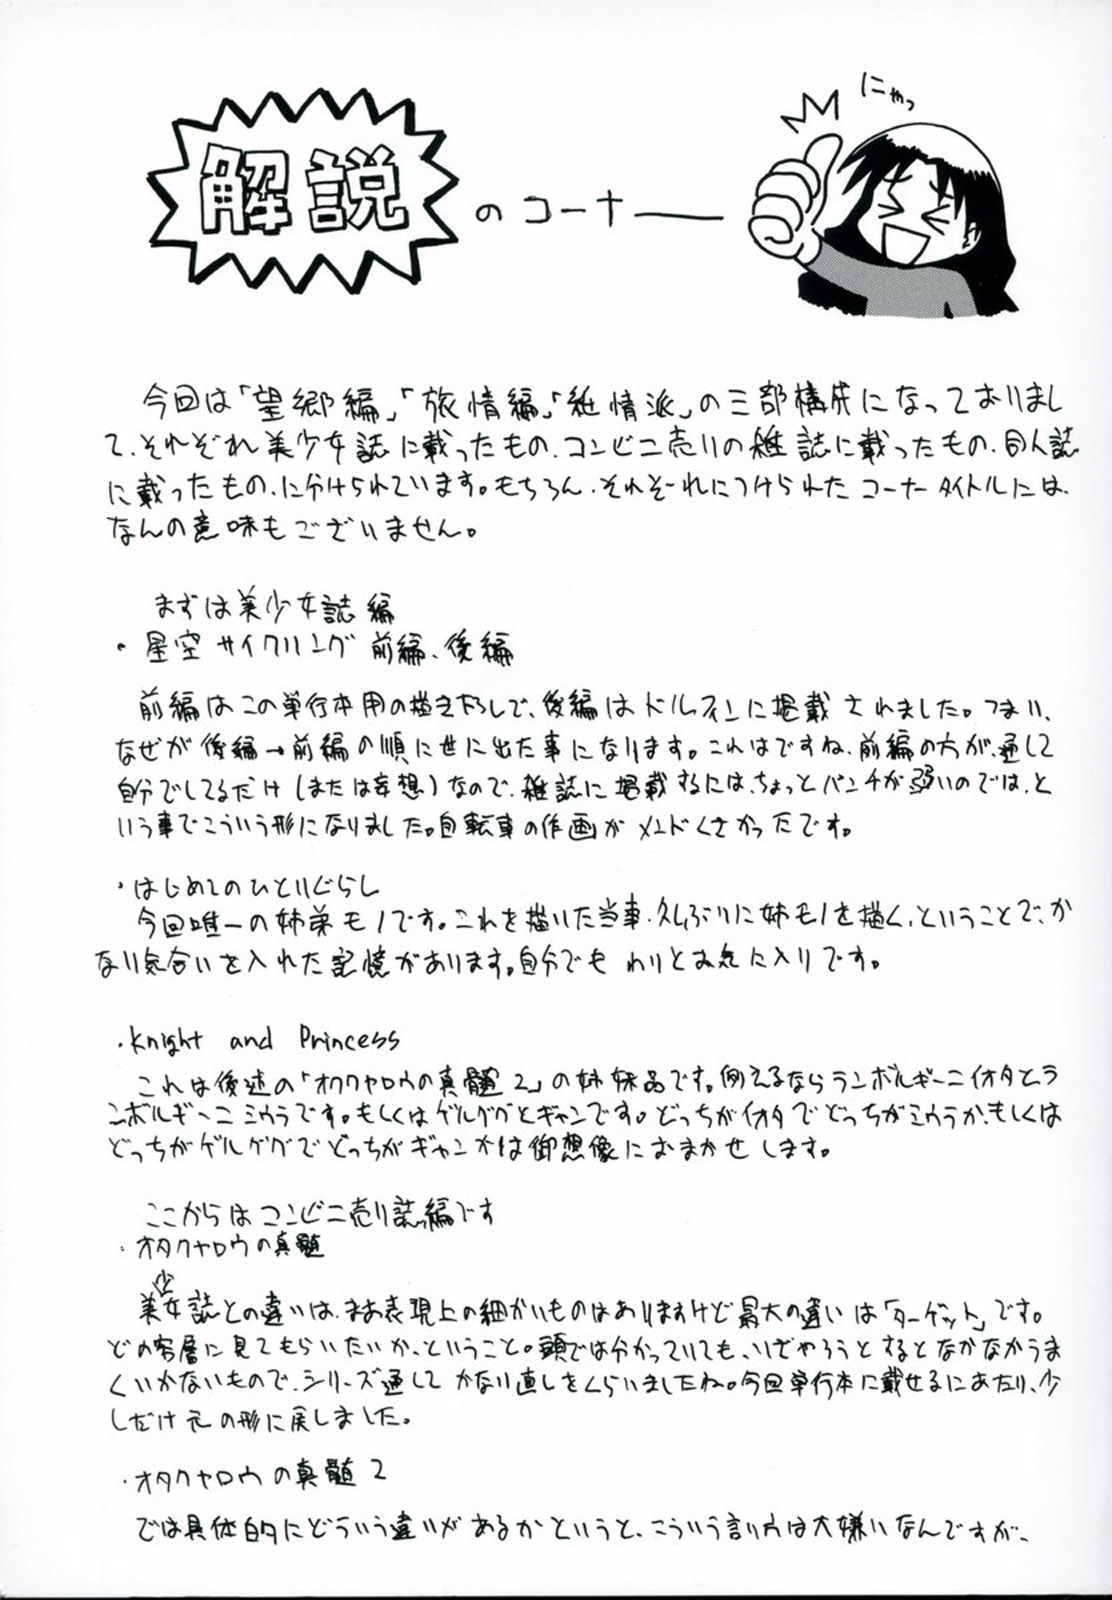 にゃっ
解説のコーナー
今回は「望郷編」「旅情編」「純情派」の三部構成になっておりまし
て、それぞれ美少女誌に載ったもの、コンビニ売りの雑誌に載ったもの、同人誌
に載ったもの、に分けられています。もちろん、それぞれにつけられたコーナータイトルには、
なんの意味もございません。
まずは美少女誌編
・星空サイクリング 前編、後編
前編はこの単行本用の描き下ろしで、後編はドルフィンに掲載されました。つまり、
なぜか後編→前編の順に世に出た事になります。これはですね、前編の方が、通して
自分でしてるだけ(または妄想)なので、雑誌に掲載するには、ちょっとパンチが弱いのでは、と
いう事でこういう形になりました。自転車の作画がメンドくさかったです。
・はじめてのひとりぐらし
今回唯一の姉弟モノです。これを描いた当事、久しぶりに姉モノを描く、ということで、か
なり気合いを入れた記憶があります。自分でもわりとお気に入りです。
・Knight and Princess
これは後述の「オタクヤロウの真髄2」の姉妹品です。例えるならランボルギーニイオタとラ
ンボルギーニミウラです。もしくはゲルググとギャンです。どっちがイオタでどっちがミウラか、もしくは
どっちがゲルググでどっちがギャンかは御想像におまかせします。
ここからはコンビニ売り誌編です
・オタクヤロウの真髄
美少女誌との違いは、まあ表現上の細かいものはありますけど最大の違いは「ターゲット」です。
どの客層に見てもらいたいか、ということ。頭では分かっていても、いざやろうとするとなかなかうま
くいかないもので、シリーズ通してかなり直しをくらいましたね。今回単行本に載せるにあたり、少
しだけ元の形に戻しました。
・オタクヤロウの真髄2
では具体的にどういう違いがあるかというと、こういう言い方は大嫌いなんですが、